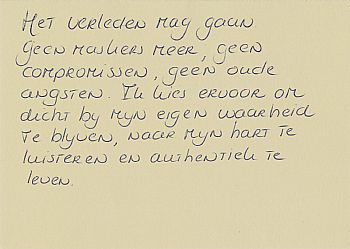 Het verleden mag gaan.
Geen maskers meer, geen
compromissen, geen oude
angsten. Ik kies ervoor om
dicht by myn eigen waarheid
te blyven, naar myn hart te
luisteren en authentiek te
leven.